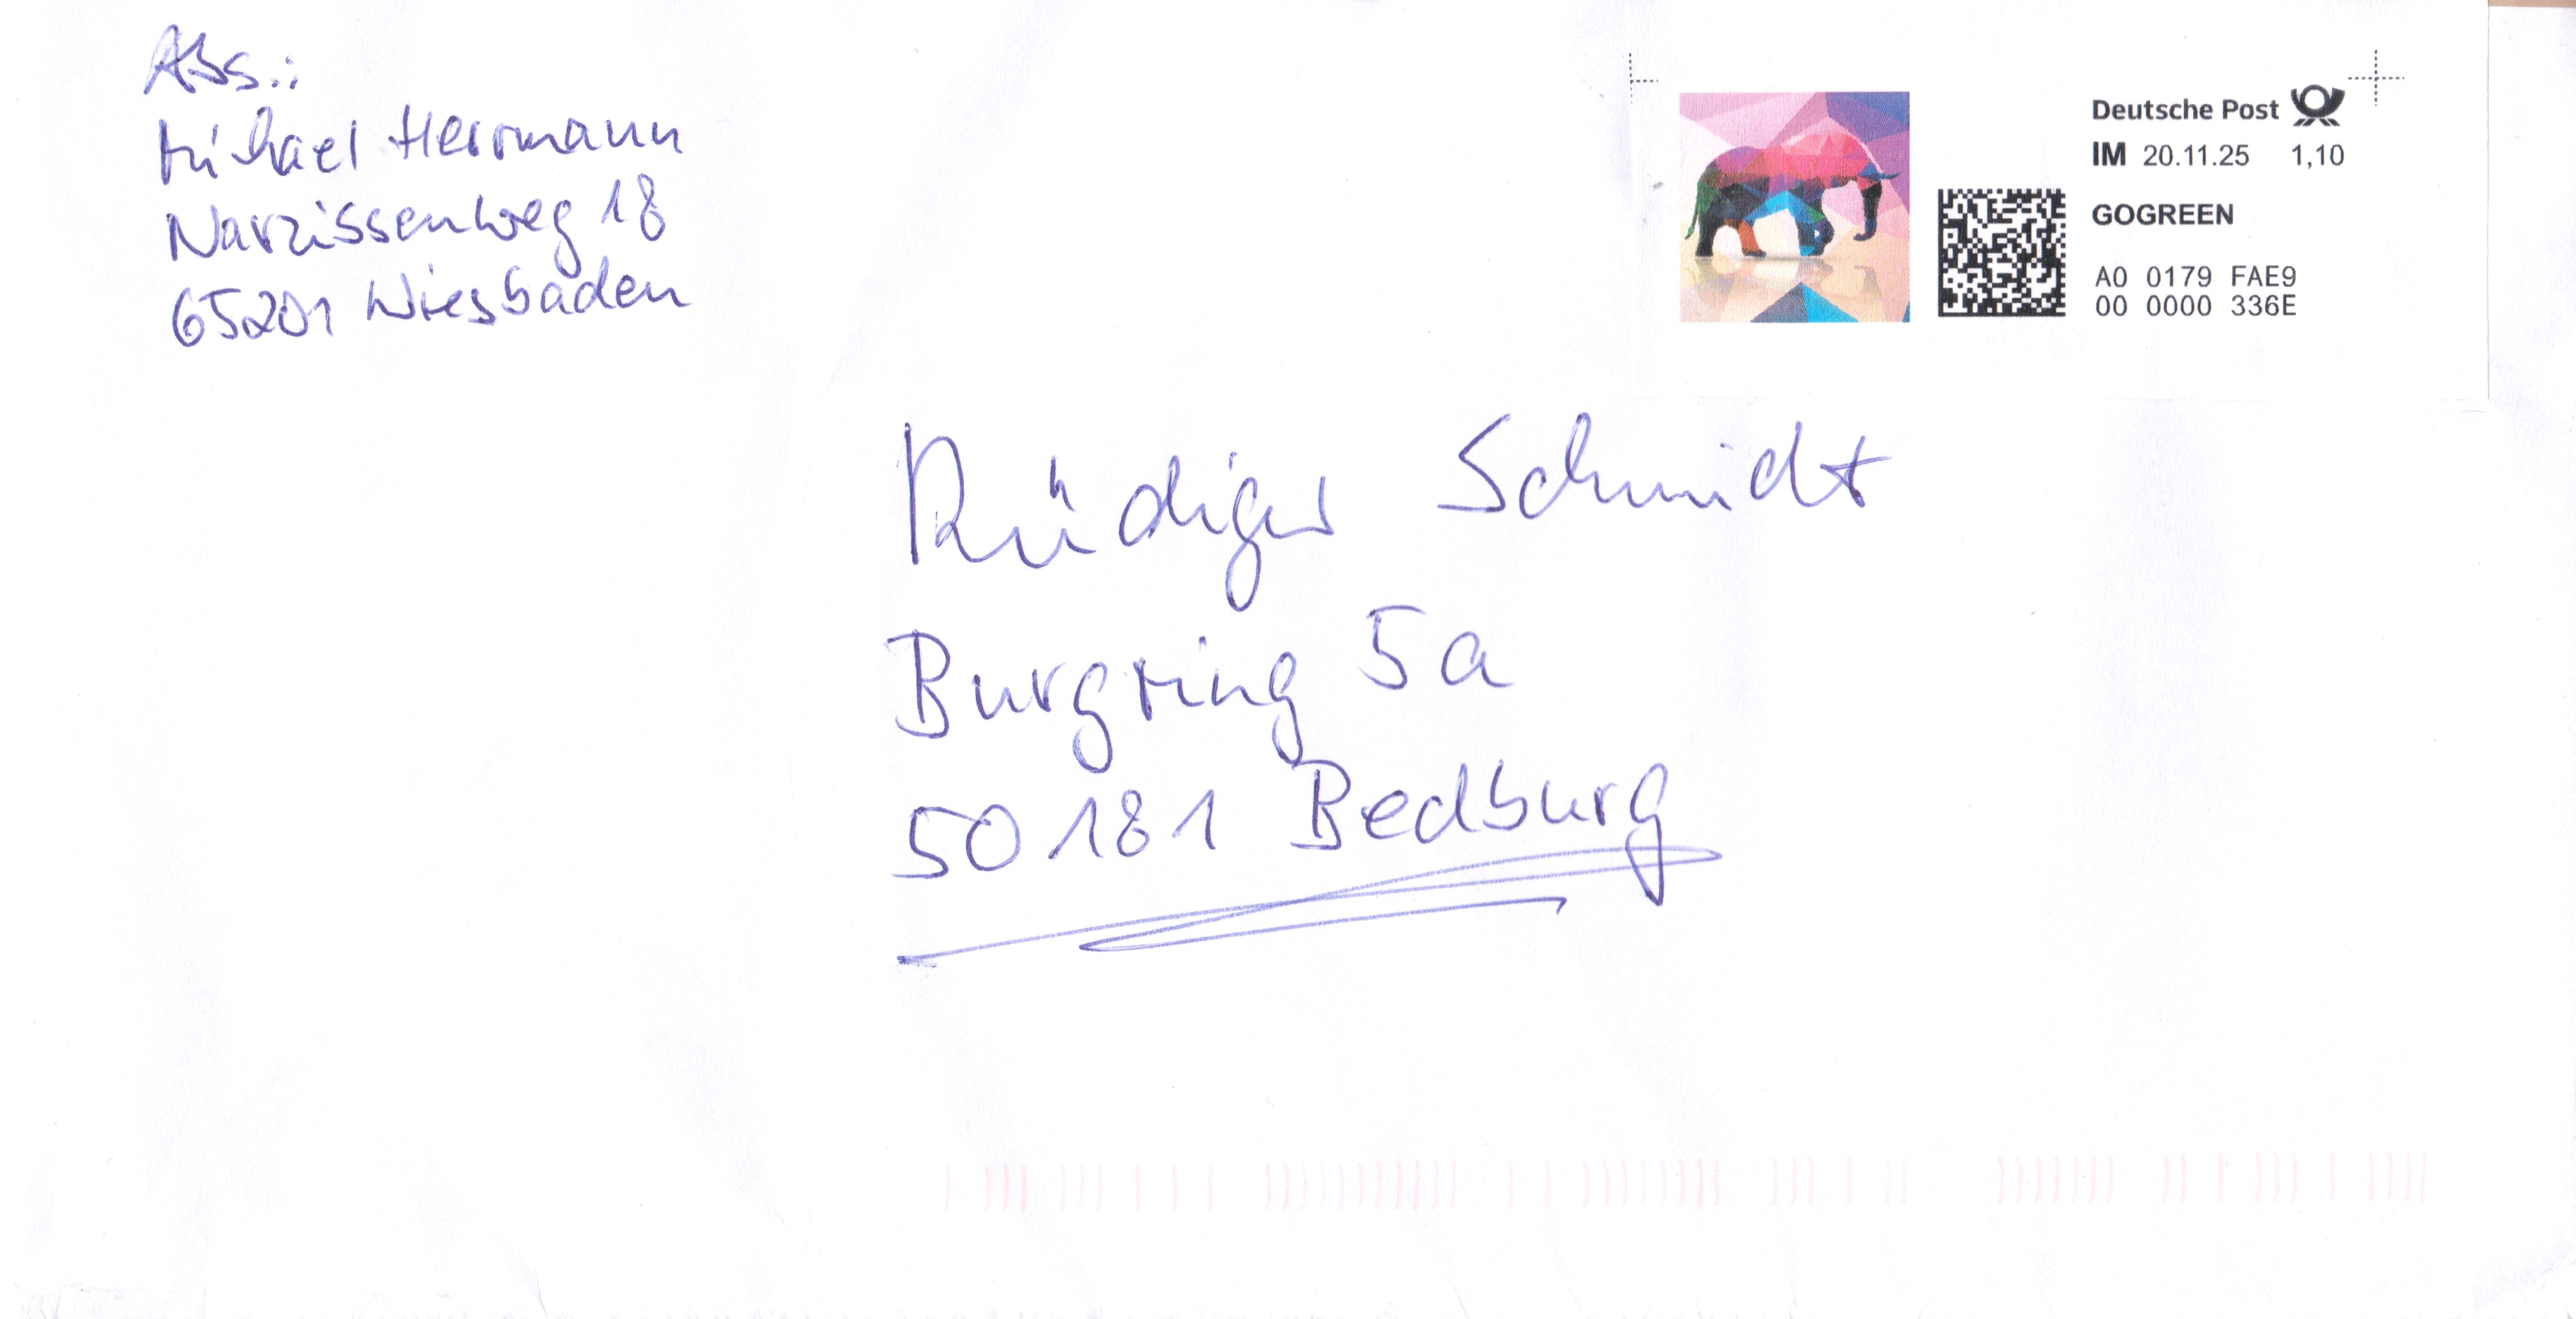 Abs.:
Michael Herrmann
Narzissenweg 18
65201 Wiesbaden
Deutsche Post
IM 20.11.25 1,10
GOGREEN
A0 0179 FAE9
00 0000 336E
Rüdiger Schmidt
Burgring 5a
50181 Bedburg